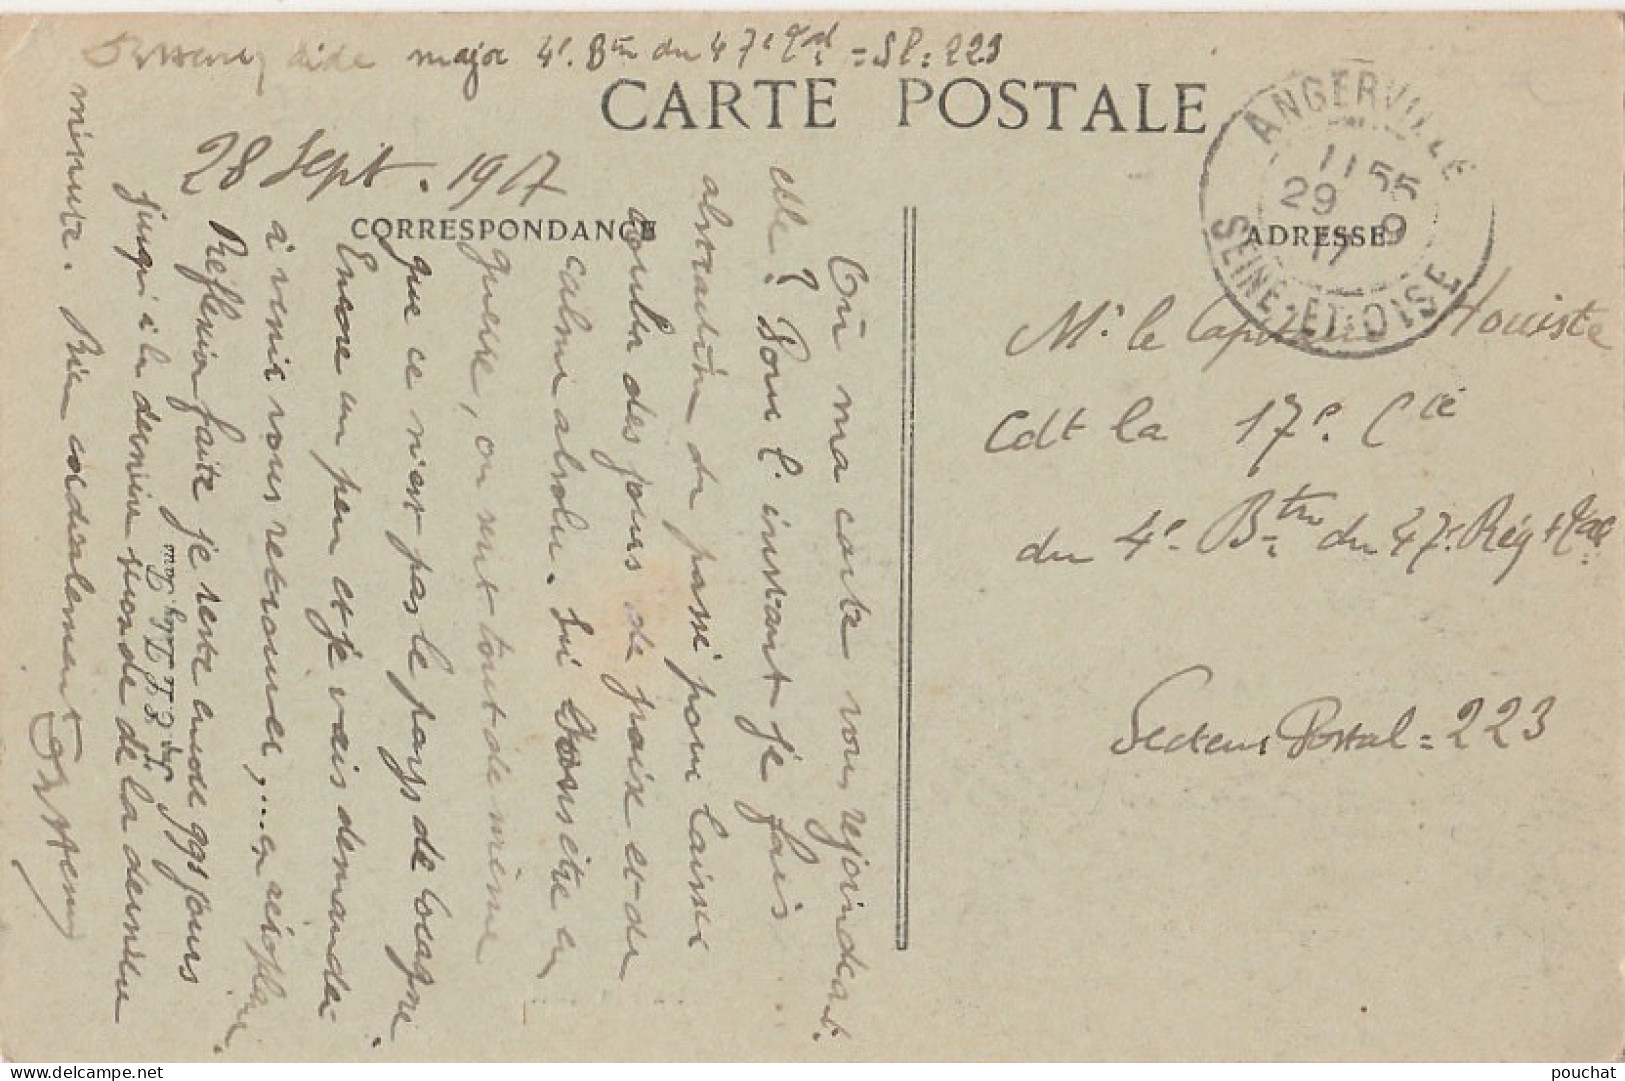 aide major 4e. Btn du 47e = SP = 223
CARTE POSTALE
28 Sept. 1917
CORRESPONDANCE
ADRESSE
ANGERVILLE
11 55
29 9
17
SEINE-ET-OISE
Mr. le Capitaine Houiste
Cdt la 17e. Cie
du 4e. Btn du 47e. Rég
Secteur Postal = 223
Où ma carte vous rejoindra-t-
elle? Pour l'instant je fais
abstraction du passé pour laisser
couler des jours de paix et de
calme absolu. Si on était en
guerre, on sent tout de même
que ce n'est pas le pays de Cocagne.
Encore un peu et je vais demander
à venir vous retrouver,... en aéroplane.
Réflexion faite je reste encore qqs jours
jusqu'à la dernière seconde de la dernière
minute. Bien cordialement